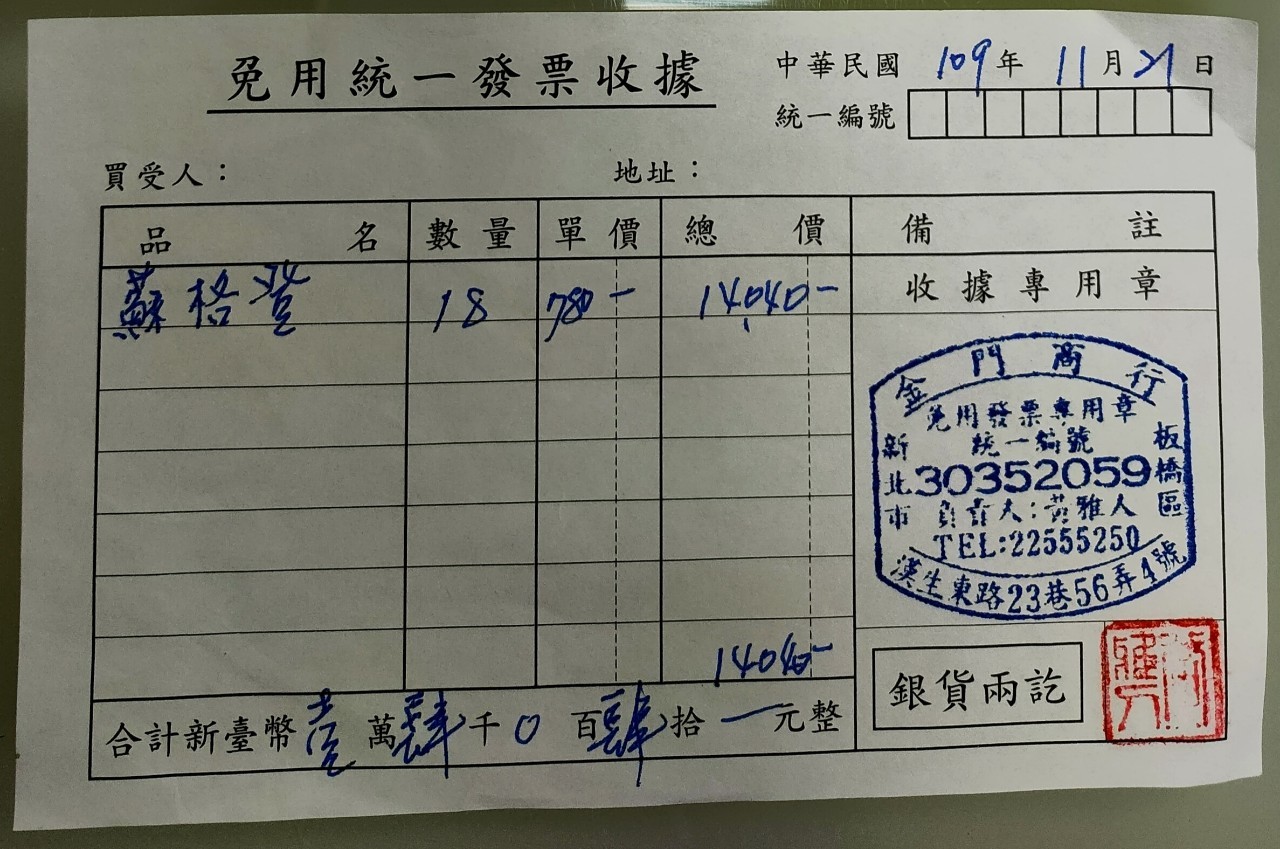 免用統一發票收據
中華民國 109 年 11 月 21 日
統一編號
買受人：
地址：
品名 數量 單價 總價 備註
蘇格登 18 780- 14040-
收據專用章
金門商行
免用發票專用章
統一編號
新北市 30352059 板橋區
負責人:黃雅人
TEL:22555250
漢生東路23巷56弄4號
14040-
合計新臺幣 壹 萬 肆 千 0 百 肆 拾 一 元整
銀貨兩訖